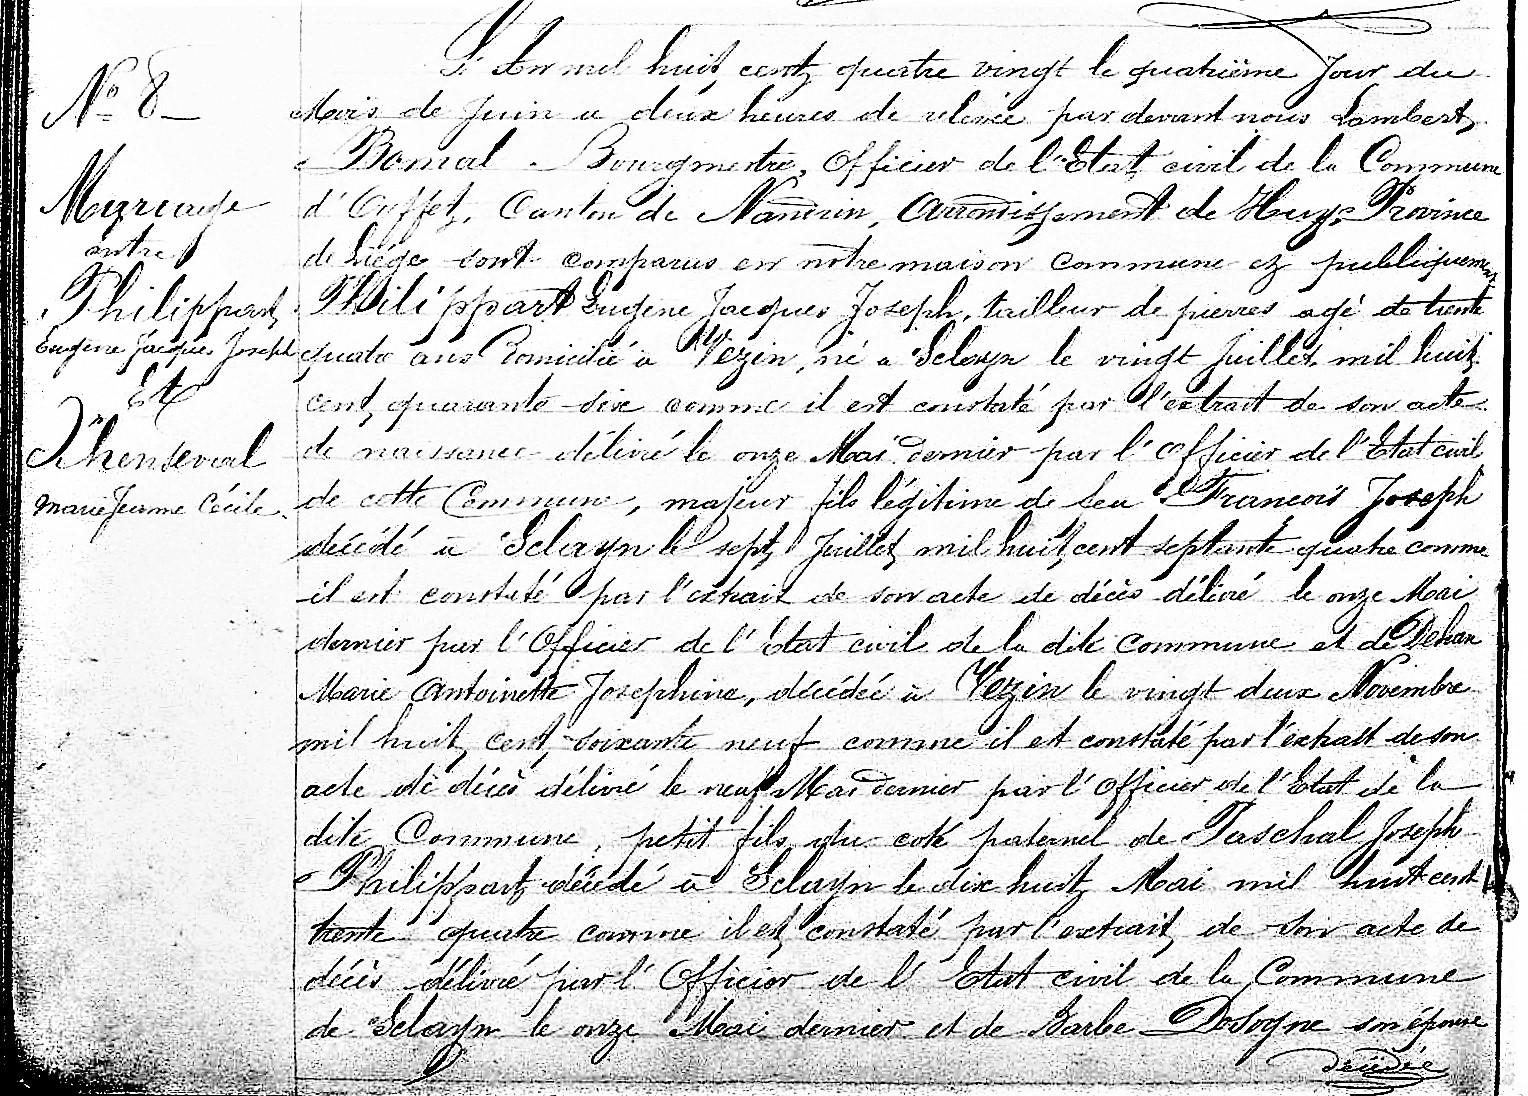 N° 8
Mariage
entre
Philippart
Eugène Jacques Joseph
Et
Thenseval
Marie Jeanne Cécile
L'An mil huit cent quatre vingt le quatrième Jour du
Mois de Juin a deux heures de relevée par devant nous Lambert
Bomal Bourgmestre, Officier de l'Etat civil de la Commune
d'Ouffet, Canton de Nandrin, Arrondissement de Huy, Province
de Liége sont comparus en notre maison commune et publiquement
Philippart Eugène Jacques Joseph, tailleur de pierres agé de trente
quatre ans Domicilié à Vezin, né a Sclayn le vingt Juillet mil huit
cent quarante-six comme il est constaté par l'extrait de son acte
de naissance délivré le onze Mai dernier par l'Officier de l'Etat civil
de cette Commune, majeur fils légitime de feu François Joseph
décédé à Sclayn le sept Juillet mil huit cent septante quatre comme
il est constaté par l'extrait de son acte de décès délivré le onze Mai
dernier par l'Officier de l'Etat civil de la dite Commune et de Dehan
Marie Antoinette Josephine, décédée à Vezin le vingt deux Novembre
mil huit cent soixante neuf comme il est constaté par l'extrait de son
acte de décès délivré le neuf Mai dernier par l'Officier de l'Etat de la
dite Commune, petit fils du coté paternel de Paschal Joseph
Philippart décédé à Sclayn le dix huit Mai mil huit cent
trente quatre comme il est constaté par l'extrait de son acte de
décès délivré par l'Officier de l'Etat civil de la Commune
de Sclayn le onze Mai dernier et de Barbe Dosogne son épouse
décédée